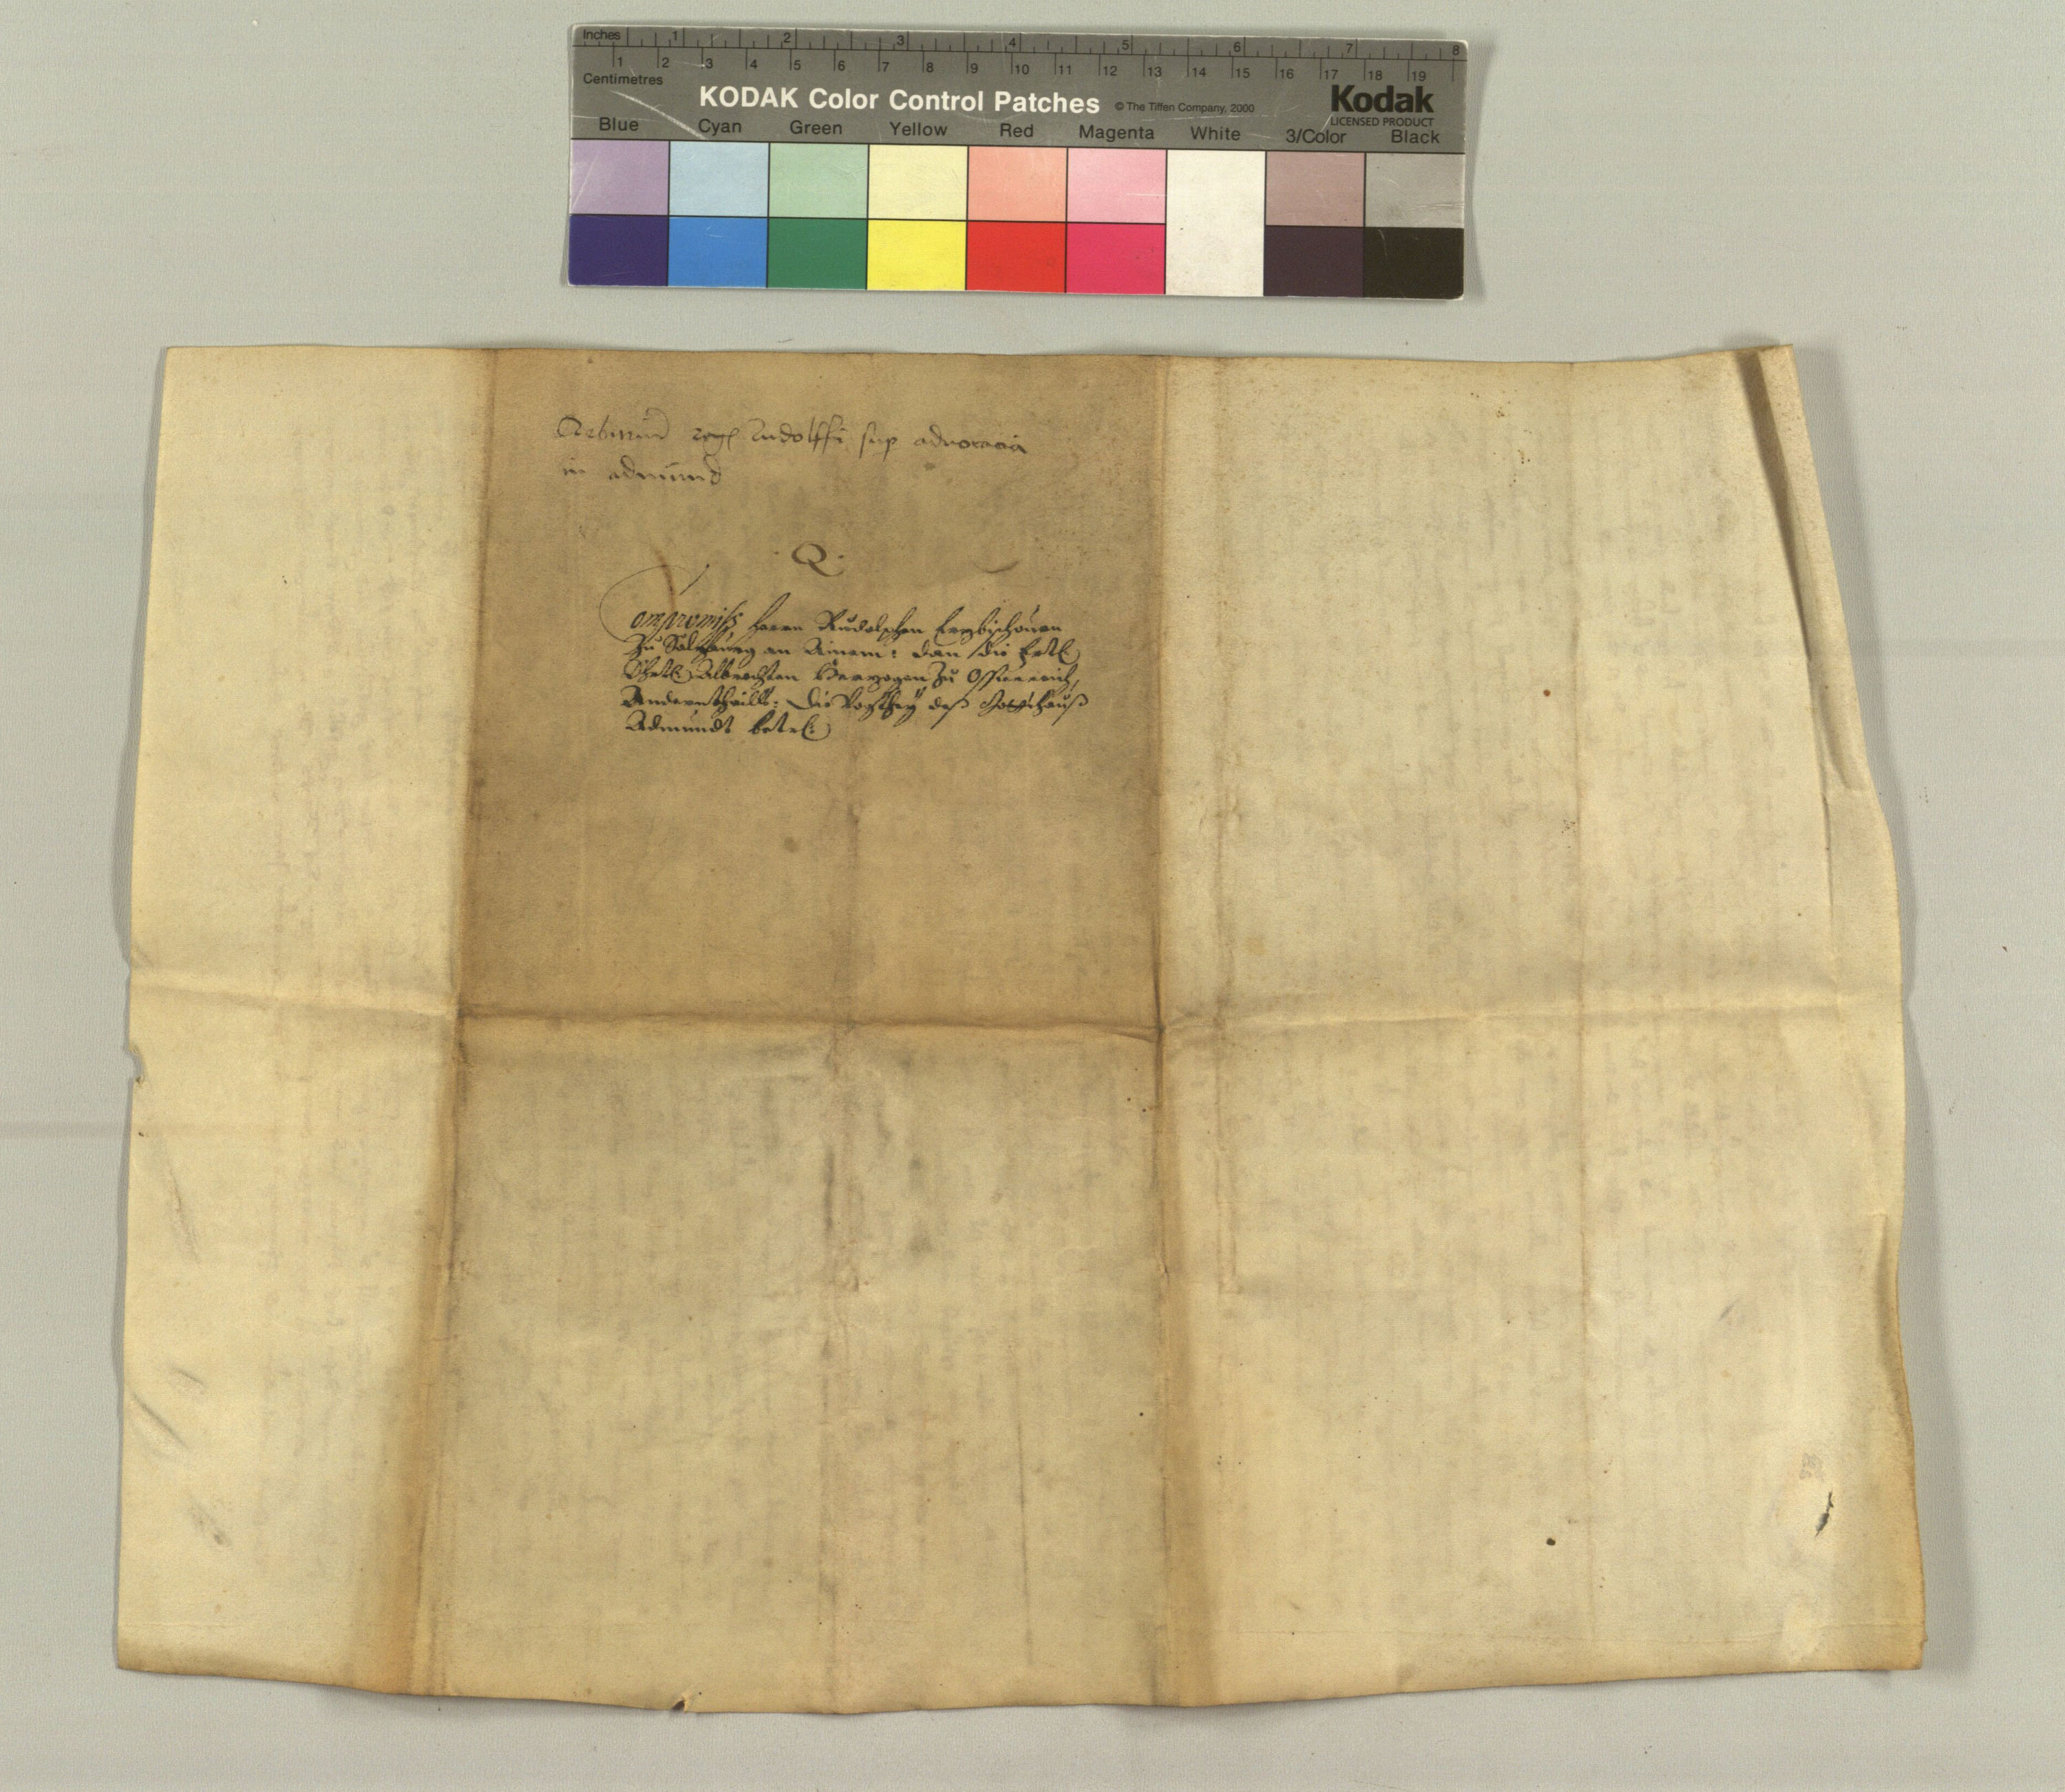 Inches 1 2 3 4 5 6 7 8
1 2 3 4 5 6 7 8 9 10 11 12 13 14 15 16 17 18 19
Centimetres
KODAK Color Control Patches © The Tiffen Company, 2000 Kodak
LICENSED PRODUCT
Blue Cyan Green Yellow Red Magenta White 3/Color Black
regl Rudolffi sup advocacia
in admund
Q.
Compromiss Herrn Rudolphen Erzbischouen
Zu Salzburg an Ainem: dan die
Albrechten Herzogen Zu Össterreich,
Anderntheills: die Vogthey deß Gottshauß
Admundt betrl: